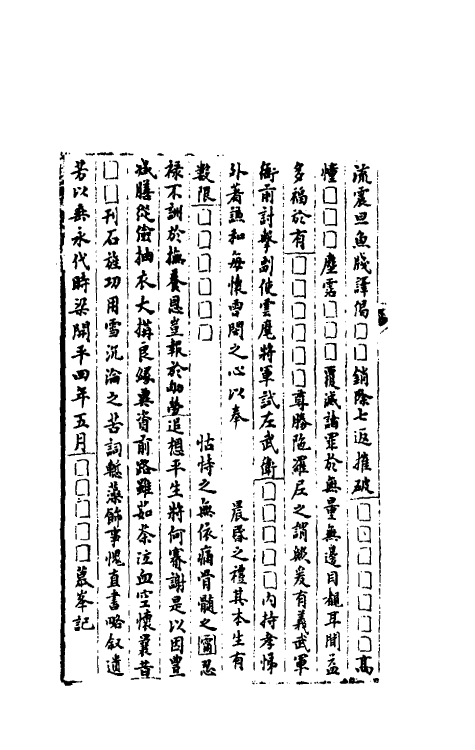 流震旦魚牋譯偈□□銷除七返摧破□□□□□□高
幢□□□塵霑□□□覆滅論罪於無量無邊目覩耳聞益
多福於有□□□□□□□尊勝陁羅尼之謂歟爰有義武軍
衙前討擊副使雲麾將軍試左武衛□□□□□内持孝悌
外著謙和每懷曾閔之心以奉 晨昏之禮其本生有
數限□□□□□□ 怙恃之無依痛骨髓之忍
祿不訓於撫養恩豈報於劬勞追想平生將何賽謝是以因豐
減膳從儉抽衣大搆良緣冀資前路雖如荼泣血空懷曩昔
□□刊石旌功用雪沉淪之苦詞慙藻飾事愧直書略叙遺
芳以冀永代時梁開平四年五月□□□□□慕峯記